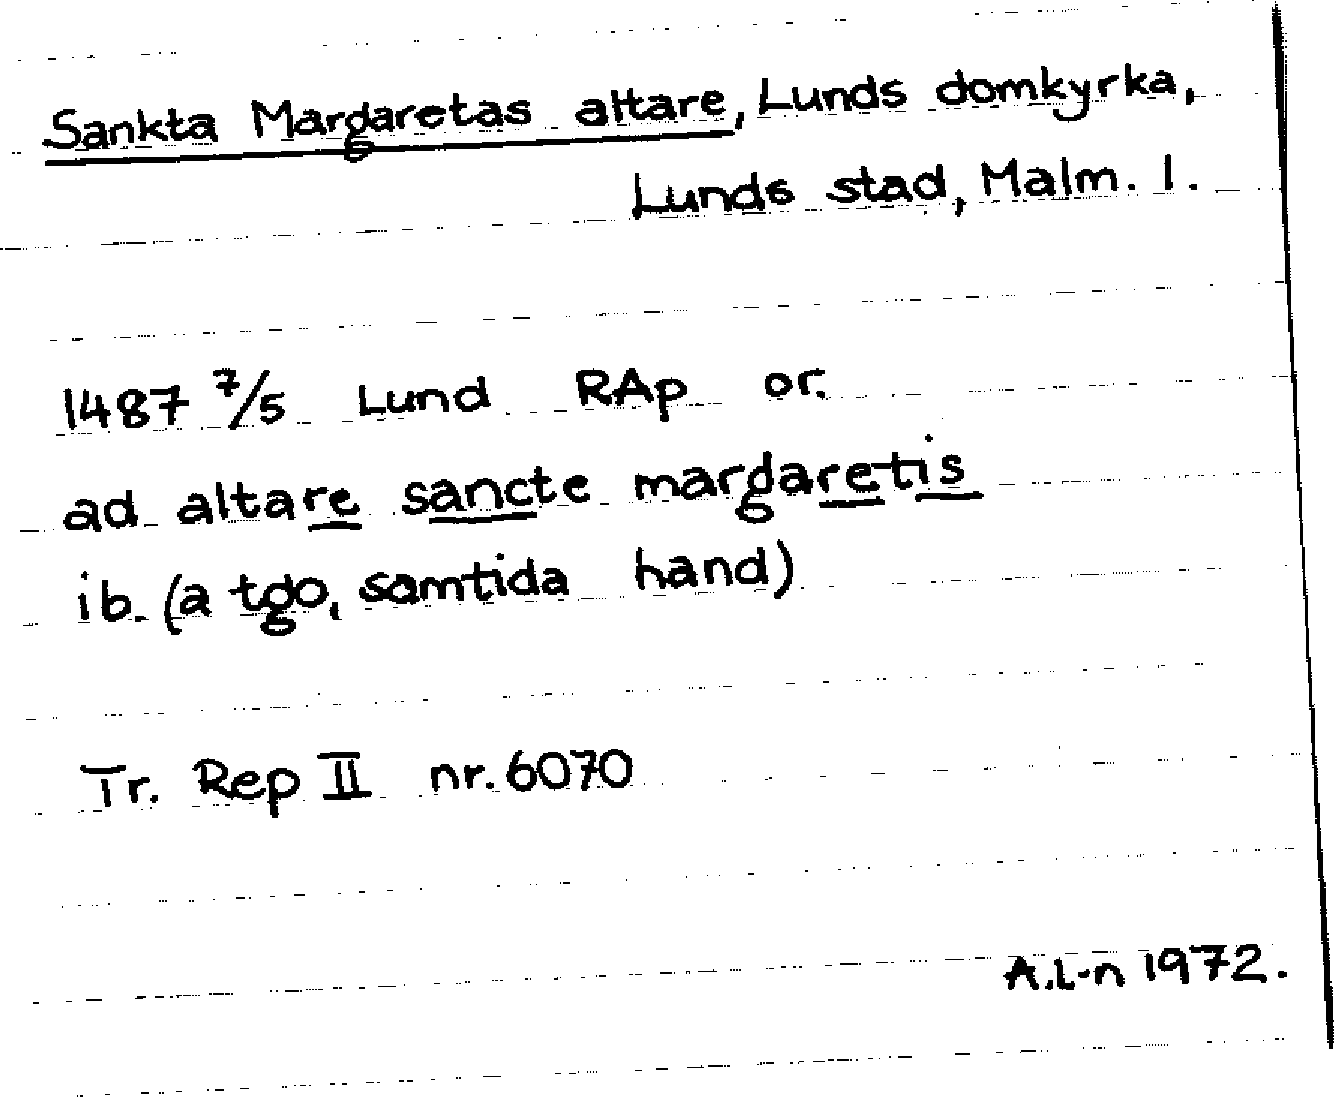 Sankta Margaretas altare, Lunds domkyrka,
Lunds stad, Malm. l.
1487 7/5 Lund RAp or.
ad altare sancte margaretis
ib. (a tgo, samtida hand)
Tr. Rep II nr. 6070
A.L-n 1972.